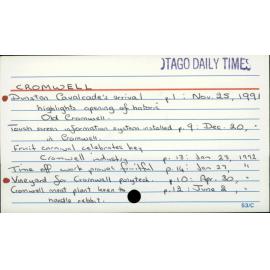 OTAGO DAILY TIMES
CROMWELL
Dunstan Cavalcade's arrival p.1: Nov. 25, 1991
highlights opening of historic
Old Cromwell.
Touch screen information system installed p.9: Dec. 20, "
in Cromwell.
Fruit carnival celebrates key
Cromwell industry p.13: Jan 23, 1992
Time off work proves fruitful p.14: Jan 27, "
Vineyard for Cromwell polytech. p.10: Apr. 30, "
Cromwell meat plant keen to p.12: June 2, "
handle rabbit.
53/C